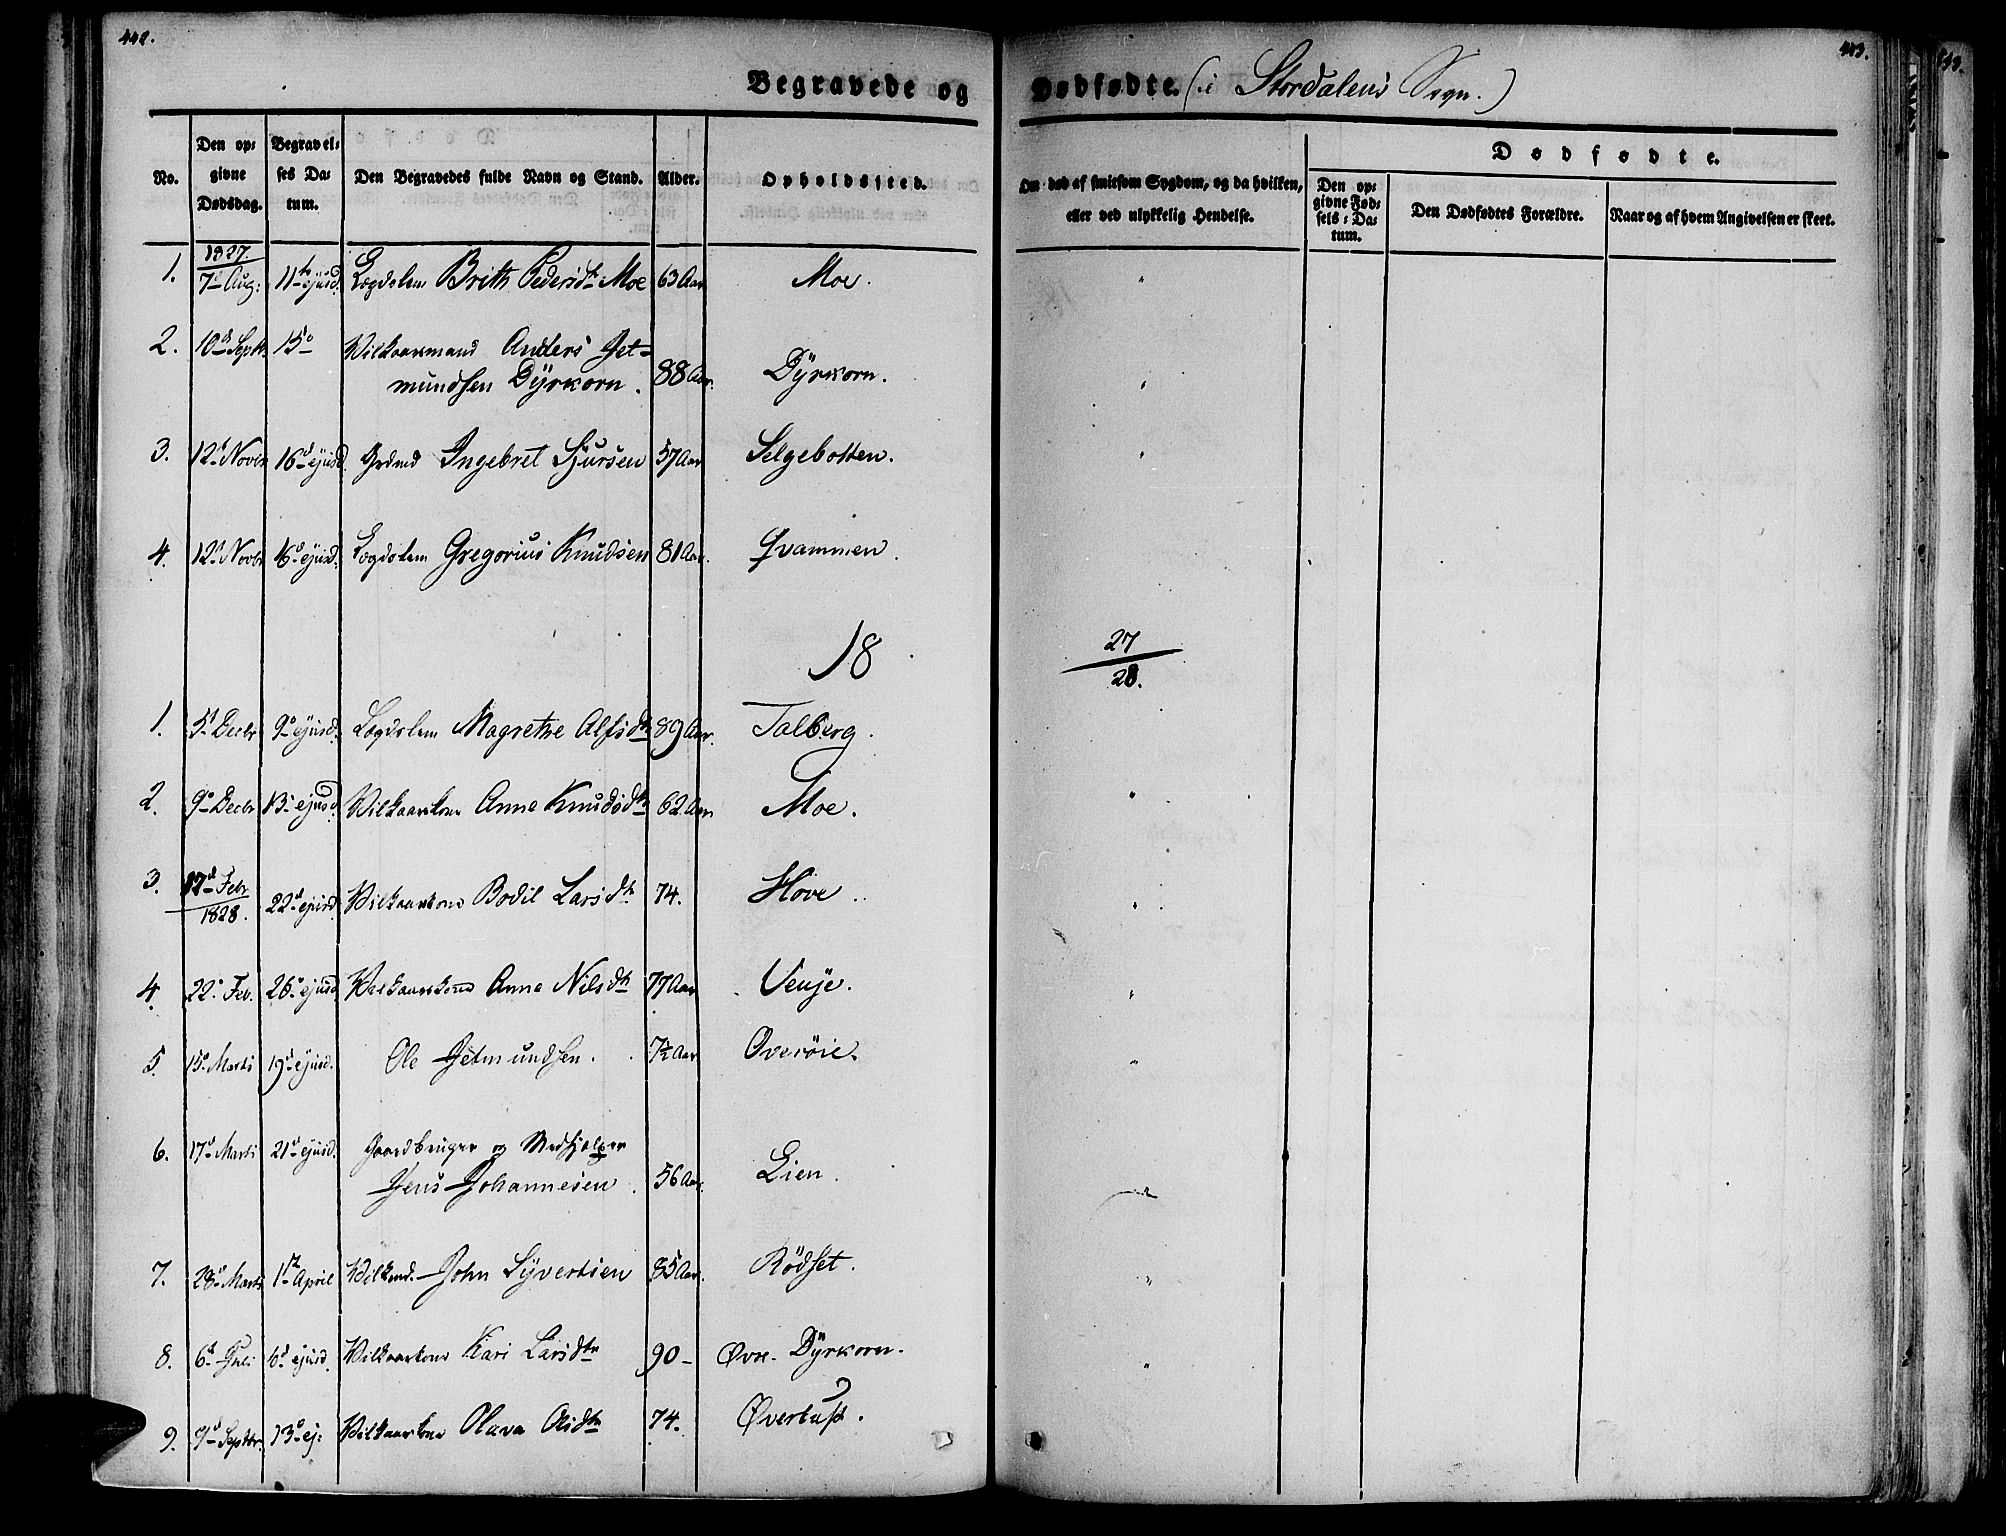 442.
443.
Begravede og Dødfødte. (i Stordalens Sogn.)
No.
Den op-
givne
Dødsdag.
Begravel-
ses Da-
tum.
Den Begravedes fulde Navn og Stand.
Alder.
Opholdssted.
Om død af smitsom Sygdom, og da hvilken,
eller ved ulykkelig Hendelse.
Dødfødte.
Den op-
givne Fød-
sels-Da-
tum.
Den Dødfødtes Forældre.
Naar og af hvem Angivelsen er skeet.
1827.
1. 7d Aug: 11te ejusd. Lægdslem Brith Pedersdtr Moe 63 Aar Moe. "
2. 10d Septb 15d Vilkaarsmand Anders Jet-
mundsen Dÿrkorn. 88 Aar. Dÿrkorn. "
3. 12d Novbr 16d ejusd. Grdmd Ingebret Sjursen 57 Aar Selgebotten. "
4. 12d Novbr 16d ejusd. Lægdslem Gregorius Knudsen 81 Aar. Qvammen.
18 27/28.
1. 5d Decbr 9d ejusd. Lægdslem Magrethe Alfsdtr 89 Aar. Talberg.
2. 9d Decbr 13d ejusd. Vilkaarskone Anne Knudsdtr 62 Aar Moe. "
3. 17d Febr
1828. 22d ejusd. Vilkaarskone Bodil Larsdtr 74. Hove. "
4. 22d Feb. 26d ejusd Vilkaarskone Anne Nilsdtr 77 Aar Venje. "
5. 15d Marts 19d ejusd. Ole Jetmundsen. 7½ Aar Overøie. "
6. 17d Marts 21d ejusd. Gaardbruger og Medhjælper
Jens Johannesen. 56 Aar. Lien.
7. 28d Marts 1ste April Vilkmd. John Sÿvertsen 85 Aar. Rödset. "
8. 6d Juli 6d ejusd. Vilkaarskone Kari Larsdtr 90 – Øvre Dÿrkorn. "
9. 9d Septbr. 13d ej: Vilkaarskone Olava Olsdtr 74.